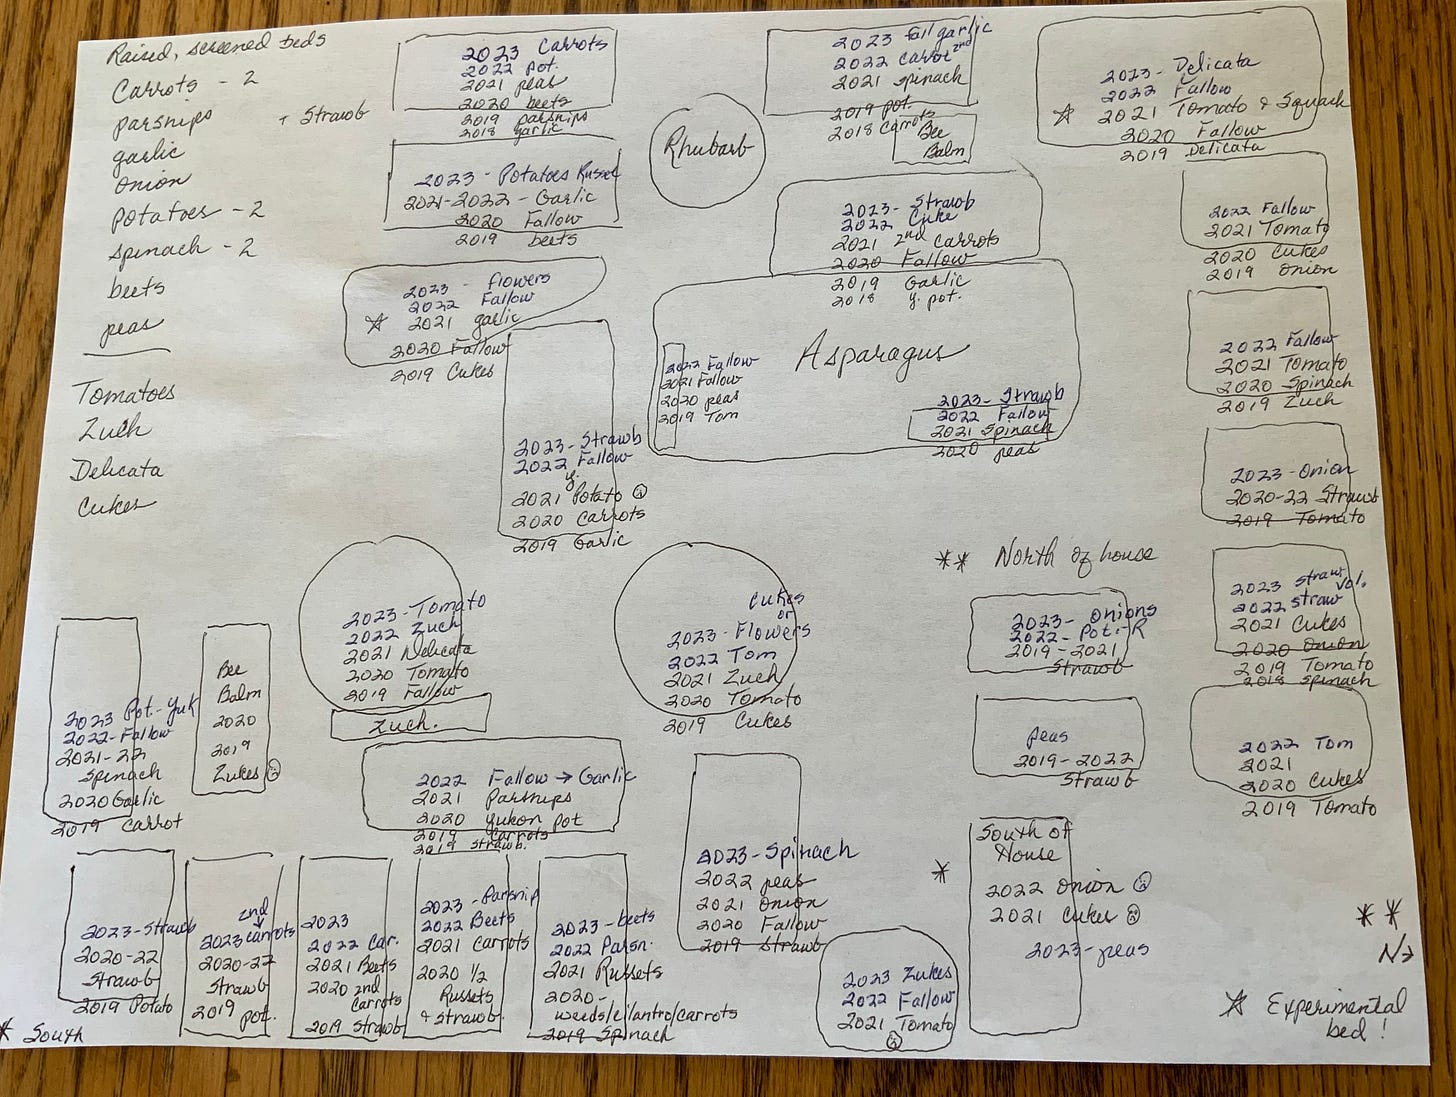 Raised, screened beds
Carrots - 2
parsnips
+ Strawb
garlic
onion
potatoes - 2
spinach - 2
beets
peas
Tomatoes
Zuch
Delicata
Cukes
2023 Carrots
2022 pot.
2021 peas
2020 beets
2019 parsnips
2018 garlic
2023 - Potatoes Russet
2021-2022 - Garlic
2020 Fallow
2019 beets
2023 - Flowers
2022 Fallow
☆ 2021 garlic
2020 Fallow
2019 Cukes
2023 - Strawb
2022 Fallow
y.
2021 Potato ☹
2020 Carrots
2019 Garlic
Rhubarb
2023 fall garlic
2022 carrot 2nd
2021 spinach
2019 pot.
2018 Carrots
Bee
Balm
2023 - Strawb
2022 Cuke
2021 2nd carrots
2020 Fallow
2019 Garlic
2018 y. pot.
Asparagus
2022 Fallow
2021 Fallow
2020 peas
2019 Tom
2023 - Strawb
2022 Fallow
2021 Spinach
2020 peas
2023 - Delicata
2022 Fallow
☆ 2021 Tomato & Squash
2020 Fallow
2019 Delicata
2022 Fallow
2021 Tomato
2020 Cukes
2019 Onion
2022 Fallow
2021 Tomato
2020 Spinach
2019 Zuch
2023 - Onion
2020-22 Strawb
2019 Tomato
2023 Straw vol.
2022 Straw
2021 Cukes
2020 Onion
2019 Tomato
2018 spinach
2022 Tom
2021
2020 Cukes
2019 Tomato
** North of house
2023 - Onions
2022 - Pot. - R
2019 - 2021
Strawb
peas
2019 - 2022
Strawb
* South of
House
2022 Onion ☹
2021 Cukes ☹
2023 - peas
2023 - Tomato
2022 Zuch
2021 Delicata
2020 Tomato
2019 Fallow
Zuch.
Cukes
or
2023 - Flowers
2022 Tom
2021 Zuch
2020 Tomato
2019 Cukes
2023 Pot. - Yuk
2022 - Fallow
2021 - 22
Spinach
2020 Garlic
2019 Carrot
Bee
Balm
2020
2019
Zukes ☹
2022 Fallow → Garlic
2021 Parsnips
2020 yukon pot
2019 Carrots
2019 Strawb.
2023 - Spinach
2022 peas
2021 Onion
2020 Fallow
2019 Strawb
2023 Zukes
2022 Fallow
2021 Tomato
☹
2023 - Strawb
2020 - 22
Strawb
2019 Potato
2nd
2023 carrots
2020-22
Strawb
2019 pot.
2023
2022 Car.
2021 Beets
2020 2nd
Carrots
2019 Strawb
2023 - Parsnip
2022 Beets
2021 Carrots
2020 1/2
Russets
& Strawb.
2023 - beets
2022 Parsn.
2021 Russets
2020 -
weeds/cilantro/carrots
2019 Spinach
* South
**
☆ Experimental
bed!